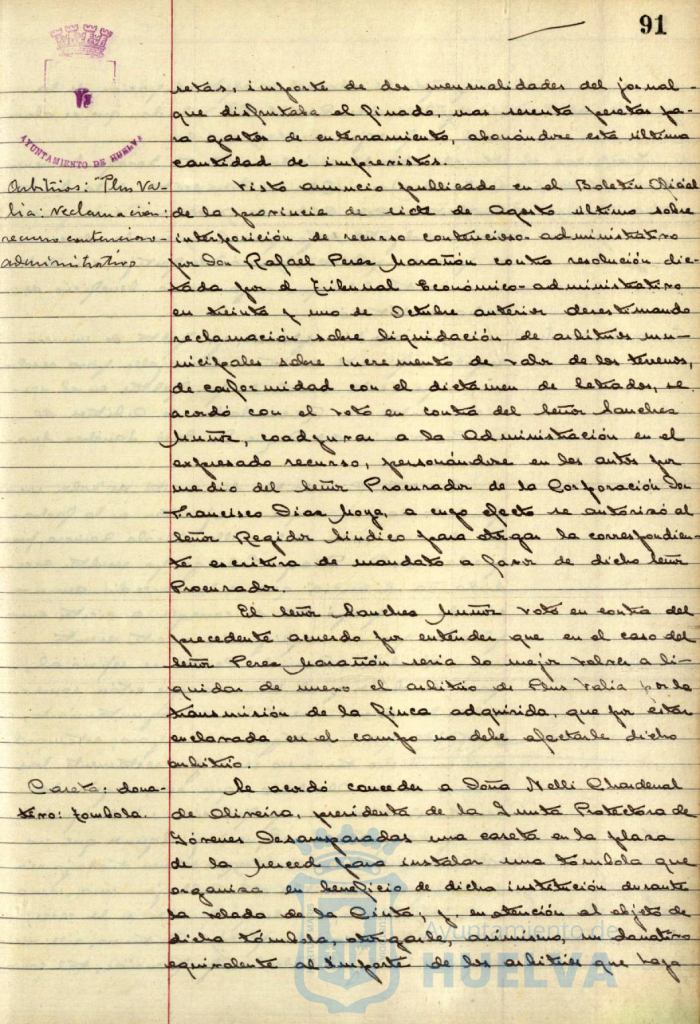 91
AYUNTAMIENTO DE HUELVA
setas, importe de dos mensualidades del jornal
que disfrutaba el finado, mas sesenta pesetas pa-
ra gastos de enterramiento, abonándose esta última
cantidad de imprevistos.
Arbitrios: "Plus Va-
lia: reclamación:
recurso contencioso-
administrativo
Visto anuncio publicado en el Boletín Oficial
de la provincia de siete de Agosto último sobre
interposición de recurso contencioso-administrativo
por Don Rafael Perez Marañón contra resolución dic-
tada por el Tribunal Económico-administrativo
en treinta y uno de Octubre anterior desestimando
reclamación sobre liquidación de arbitrios mu-
nicipales sobre incremento de valor de los terrenos,
de conformidad con el dictamen de letrados, se
acordó con el voto en contra del Señor Sanchez
Muñoz, coadyuvar a la Administración en el
expresado recurso, personándose en los autos por
medio del Señor Procurador de la Corporación Don
Francisco Diaz Moya, a cuyo efecto se autorizó al
Señor Regidor Sindico para otorgar la correspondien-
te escritura de mandato a favor de dicho Señor
Procurador.
El Señor Sanchez Muñoz votó en contra del
precedente acuerdo por entender que en el caso del
Señor Perez Marañón seria lo mejor volver a li-
quidar de nuevo el arbitrio de Plus Valia por la
transmisión de la finca adquirida, que por estar
enclavada en el campo no debe afectarle dicho
arbitrio.
Caseta: dona-
tivo: tombola.
Se acordó conceder a Doña Nelli Chardenal
de Oliveira, presidenta de la Junta Protectora de
Jóvenes Desamparadas una caseta en la plaza
de la Merced para instalar una tómbola que
organiza en beneficio de dicha institución durante
la velada de la Cinta, y, en atención al objeto de
dicha tómbola, otorgarle, asimismo, un donativo
equivalente al importe de los arbitrios que haya
Ayuntamiento de
HUELVA